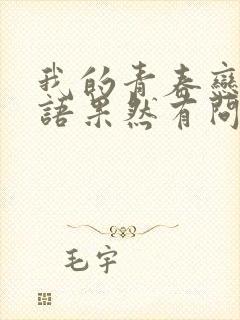 我的青春戀
語果然有問
毛宇